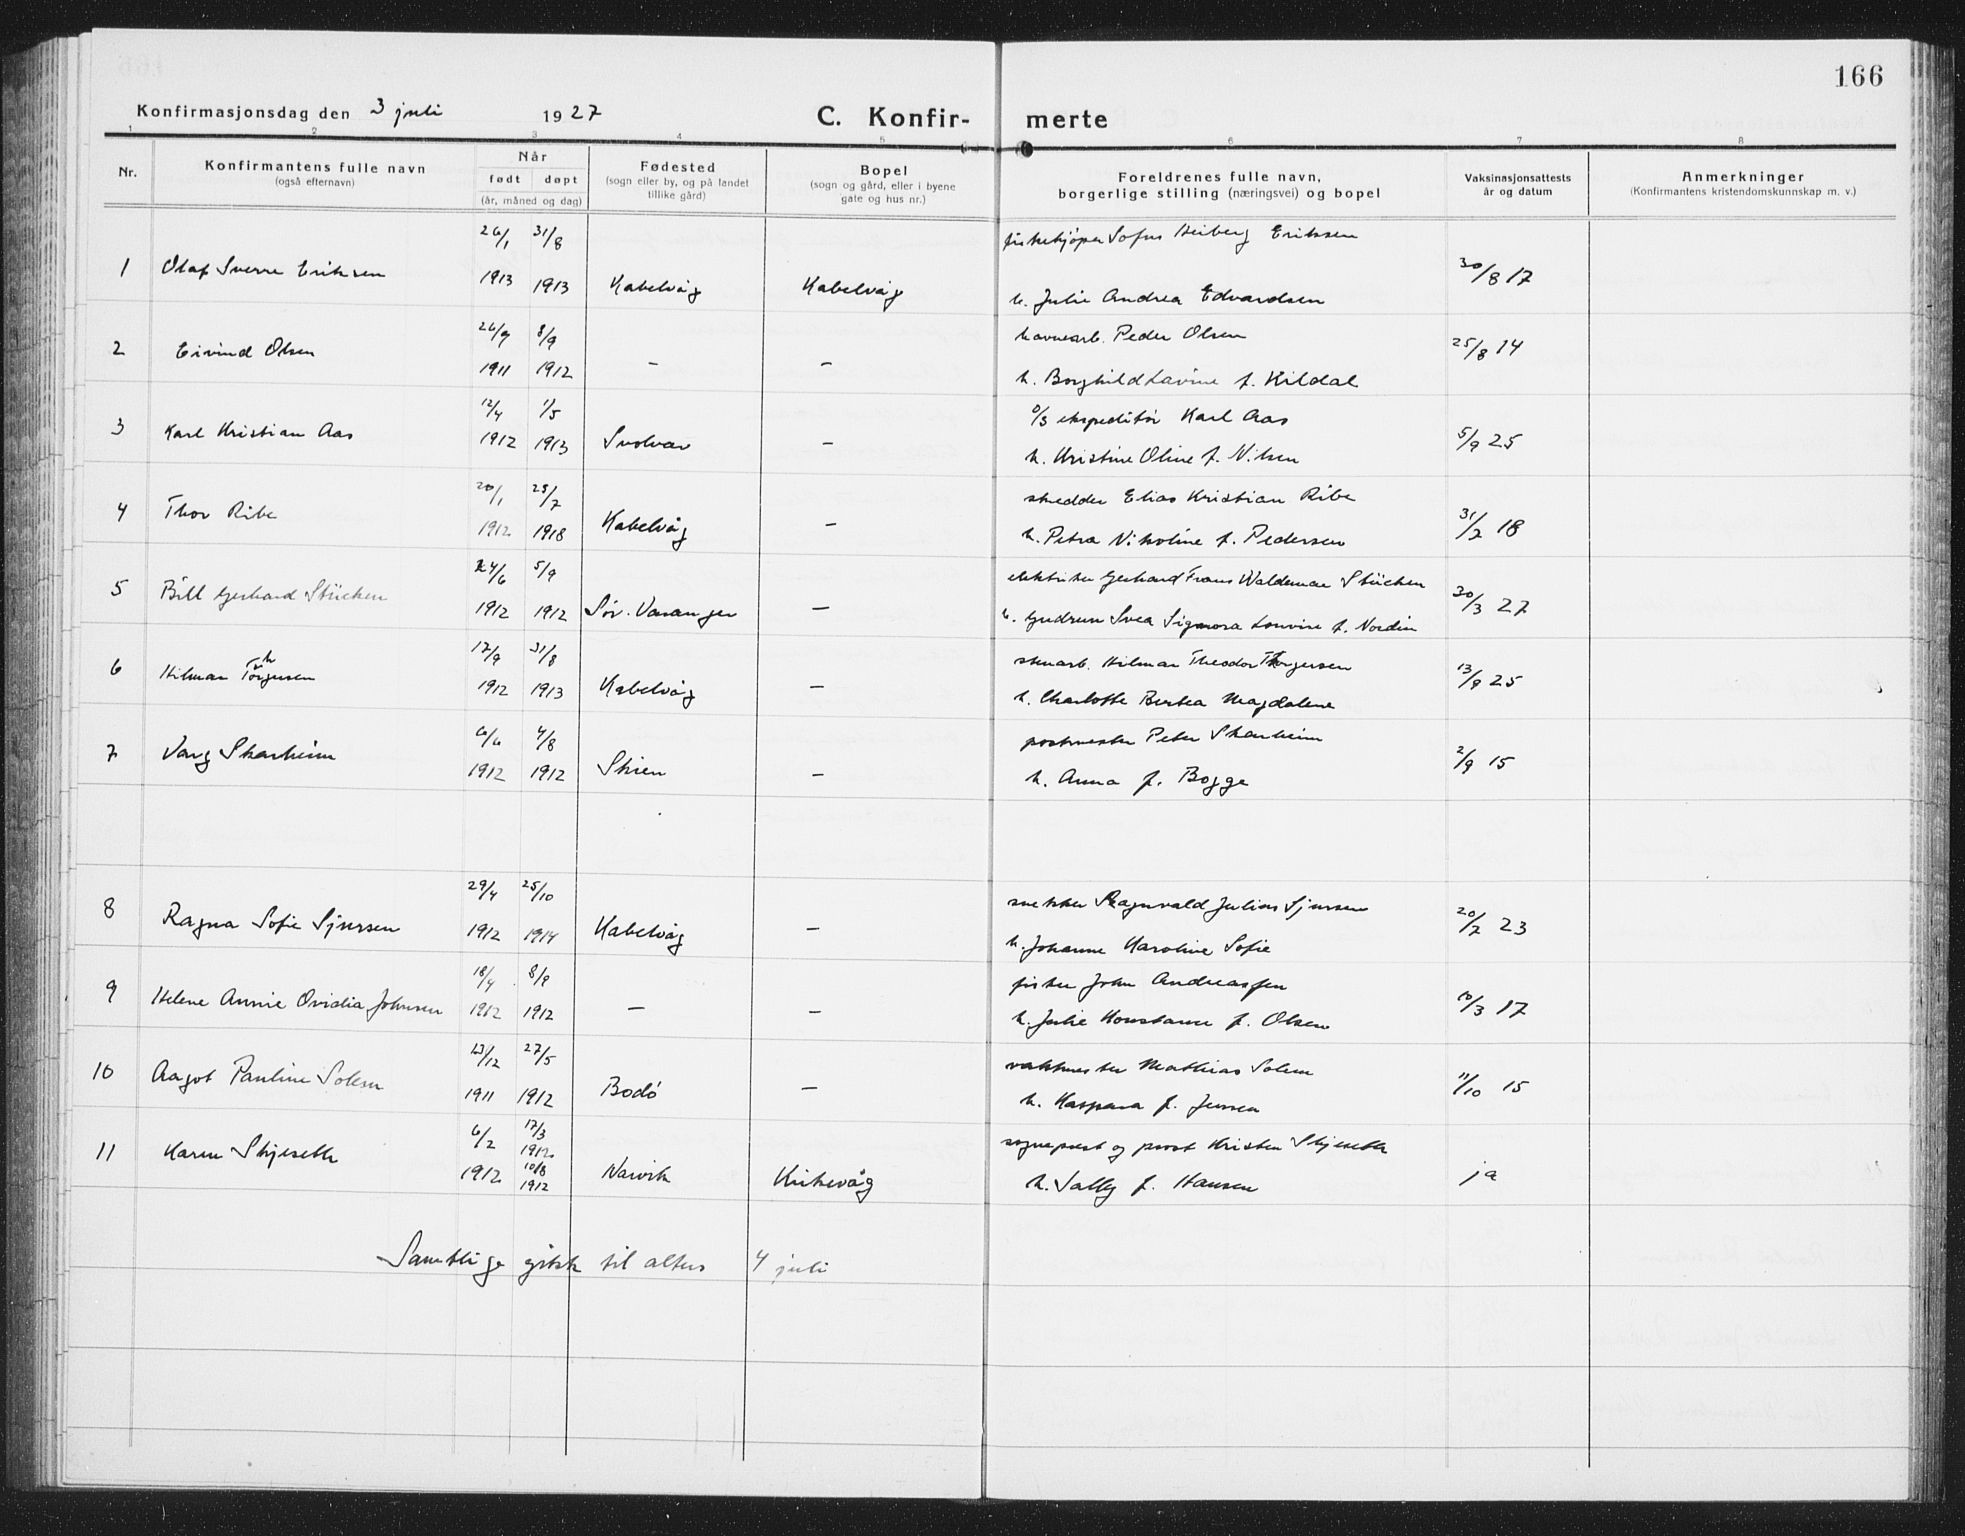 166
Konfirmasjonsdag den 3 juli 1927 C. Konfir- merte
1 2 3 4 5 6 7 8
Nr. Konfirmantens fulle navn (også efternavn) Når født døpt (år, måned og dag) Fødested (sogn eller by, og på landet tillike gård) Bopel (sogn og gård, eller i byene gate og hus nr.) Foreldrenes fulle navn, borgerlige stilling (næringsvei) og bopel Vaksinasjonsattests år og datum Anmerkninger (Konfirmantens kristendomskunnskap m. v.)
26/1 31/8 fiskekjøper Sofus Heiberg Eriksen
1 Olaf Sverre Eriksen 1913 1913 Kabelvåg Kabelvåg h. Julie Andrea Edvardsen 30/8 17
26/9 8/9 havnearb. Peder Olsen
2 Eivind Olsen 1911 1912 — — h. Borghild Lavine f. Kildal 25/8 14
12/4 1/5 d/s ekspeditør Karl Aas
3 Karl Kristian Aas 1912 1913 Svolvær — h. Kristine Oline f. Nilsen 5/9 25
20/1 28/7 skredder Elias Kristian Ribe
4 Thor Ribe 1912 1918 Kabelvåg — h. Petra Nikoline f. Pedersen 31/2 18
24/6 5/9 elektriker Gerhard Frans Waldemar Stücken
5 Bill Gerhard Stücken 1912 1912 Sør-Varanger — h. Gudrun Svea Signora Lovise f. Nordin 30/3 27
17/9 31/8 stenarb. Hilmar Theodor Thorgersen
6 Hilmar Thorgersen 1912 1913 Kabelvåg — h. Charlotte Bertea Magdalene 13/9 25
6/6 4/8 postmester Peter Skarheim
7 Varg Skarheim 1912 1912 Skien — h. Anna f. Bogge 2/9 15
29/4 25/10 snekker Ragnvald Julius Sjursen
8 Ragna Sofie Sjursen 1912 1914 Kabelvåg — h. Johanne Karoline Sofie 20/7 23
18/4 8/9 fisker John Andreassen
9 Helene Annie Ovidia Johnsen 1912 1912 — — h. Julie Konstanse f. Olsen 10/3 17
23/12 27/5 vaktmester Mathias Solem
10 Aagot Pauline Solem 1911 1912 Bodø — h. Kaspara f. Jensen 11/10 15
6/2 17/3 1912 sogneprest og prost Kristen Skjeseth
11 Karen Skjeseth 1912 10/8 1912 Narvik Kirkevåg h. Sally f. Hansen ja
Samtlige gikk til alters 4 juli